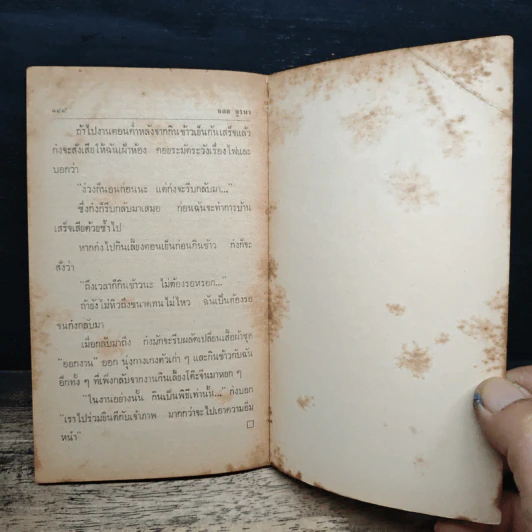 ถ้าไปงานตอนค่ำหลังจากกินข้าวเย็นกันเสร็จแล้ว
ก่งจะสั่งเสียให้ฉันเฝ้าห้อง คอยระมัดระวังเรื่องไฟและ
บอกว่า
"ง่วงก็นอนก่อนนะ แต่ก่งจะรีบกลับมา..."
ซึ่งก่งก็รีบกลับมาเสมอ ก่อนฉันจะทำการบ้าน
เสร็จเสียด้วยซ้ำไป
หากก่งไปกินเลี้ยงตอนเย็นก่อนกินข้าว ก่งก็จะ
สั่งว่า
"ถึงเวลาก็กินข้าวนะ ไม่ต้องรอหรอก..."
ถ้ายังไม่หิวถึงขนาดทนไม่ไหว ฉันเป็นต้องรอ
จนก่งกลับมา
เมื่อกลับมาถึง ก่งมักจะรีบผลัดเปลี่ยนเสื้อผ้าชุด
"ออกงาน" ออก นุ่งกางเกงตัวเก่า ๆ และกินข้าวกับฉัน
อีกทั้ง ๆ ที่เพิ่งกลับจากงานกินเลี้ยงโต๊ะจีนมาหยก ๆ
"ในงานอย่างนั้น กินเป็นพิธีเท่านั้น..." ก่งบอก
"เราไปร่วมยินดีกับเจ้าภาพ มากกว่าจะไปเอาความอิ่ม
หน้า"